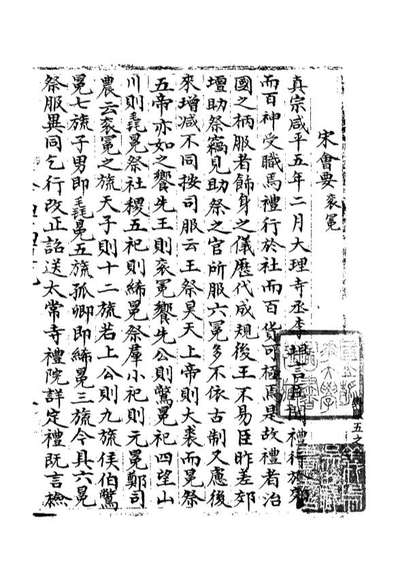 宋會要 袞冕
真宗咸平五年二月大理寺丞李言臣聞禮行於郊
而百神受職焉禮行於社而百貨可極焉是故禮者治
國之柄服者飾身之儀歷代成規後王不易臣昨差郊
壇助祭竊見助祭之官所服六冕多不依古制又慮後
來增减不同按司服云王祭昊天上帝則大裘而冕祭
五帝亦如之饗先王則袞冕饗先公則鷩冕祀四望山
川則毳冕祭社稷五祀則絺冕祭羣小祀則元冕鄭司
農云袞冕之旒天子則十二旒若上公則九旒侯伯鷩
冕七旒子男即毳冕五旒孤卿即絺冕三旒今具六冕
祭服異同乞行改正詔送太常寺禮院詳定禮既言檢
五之